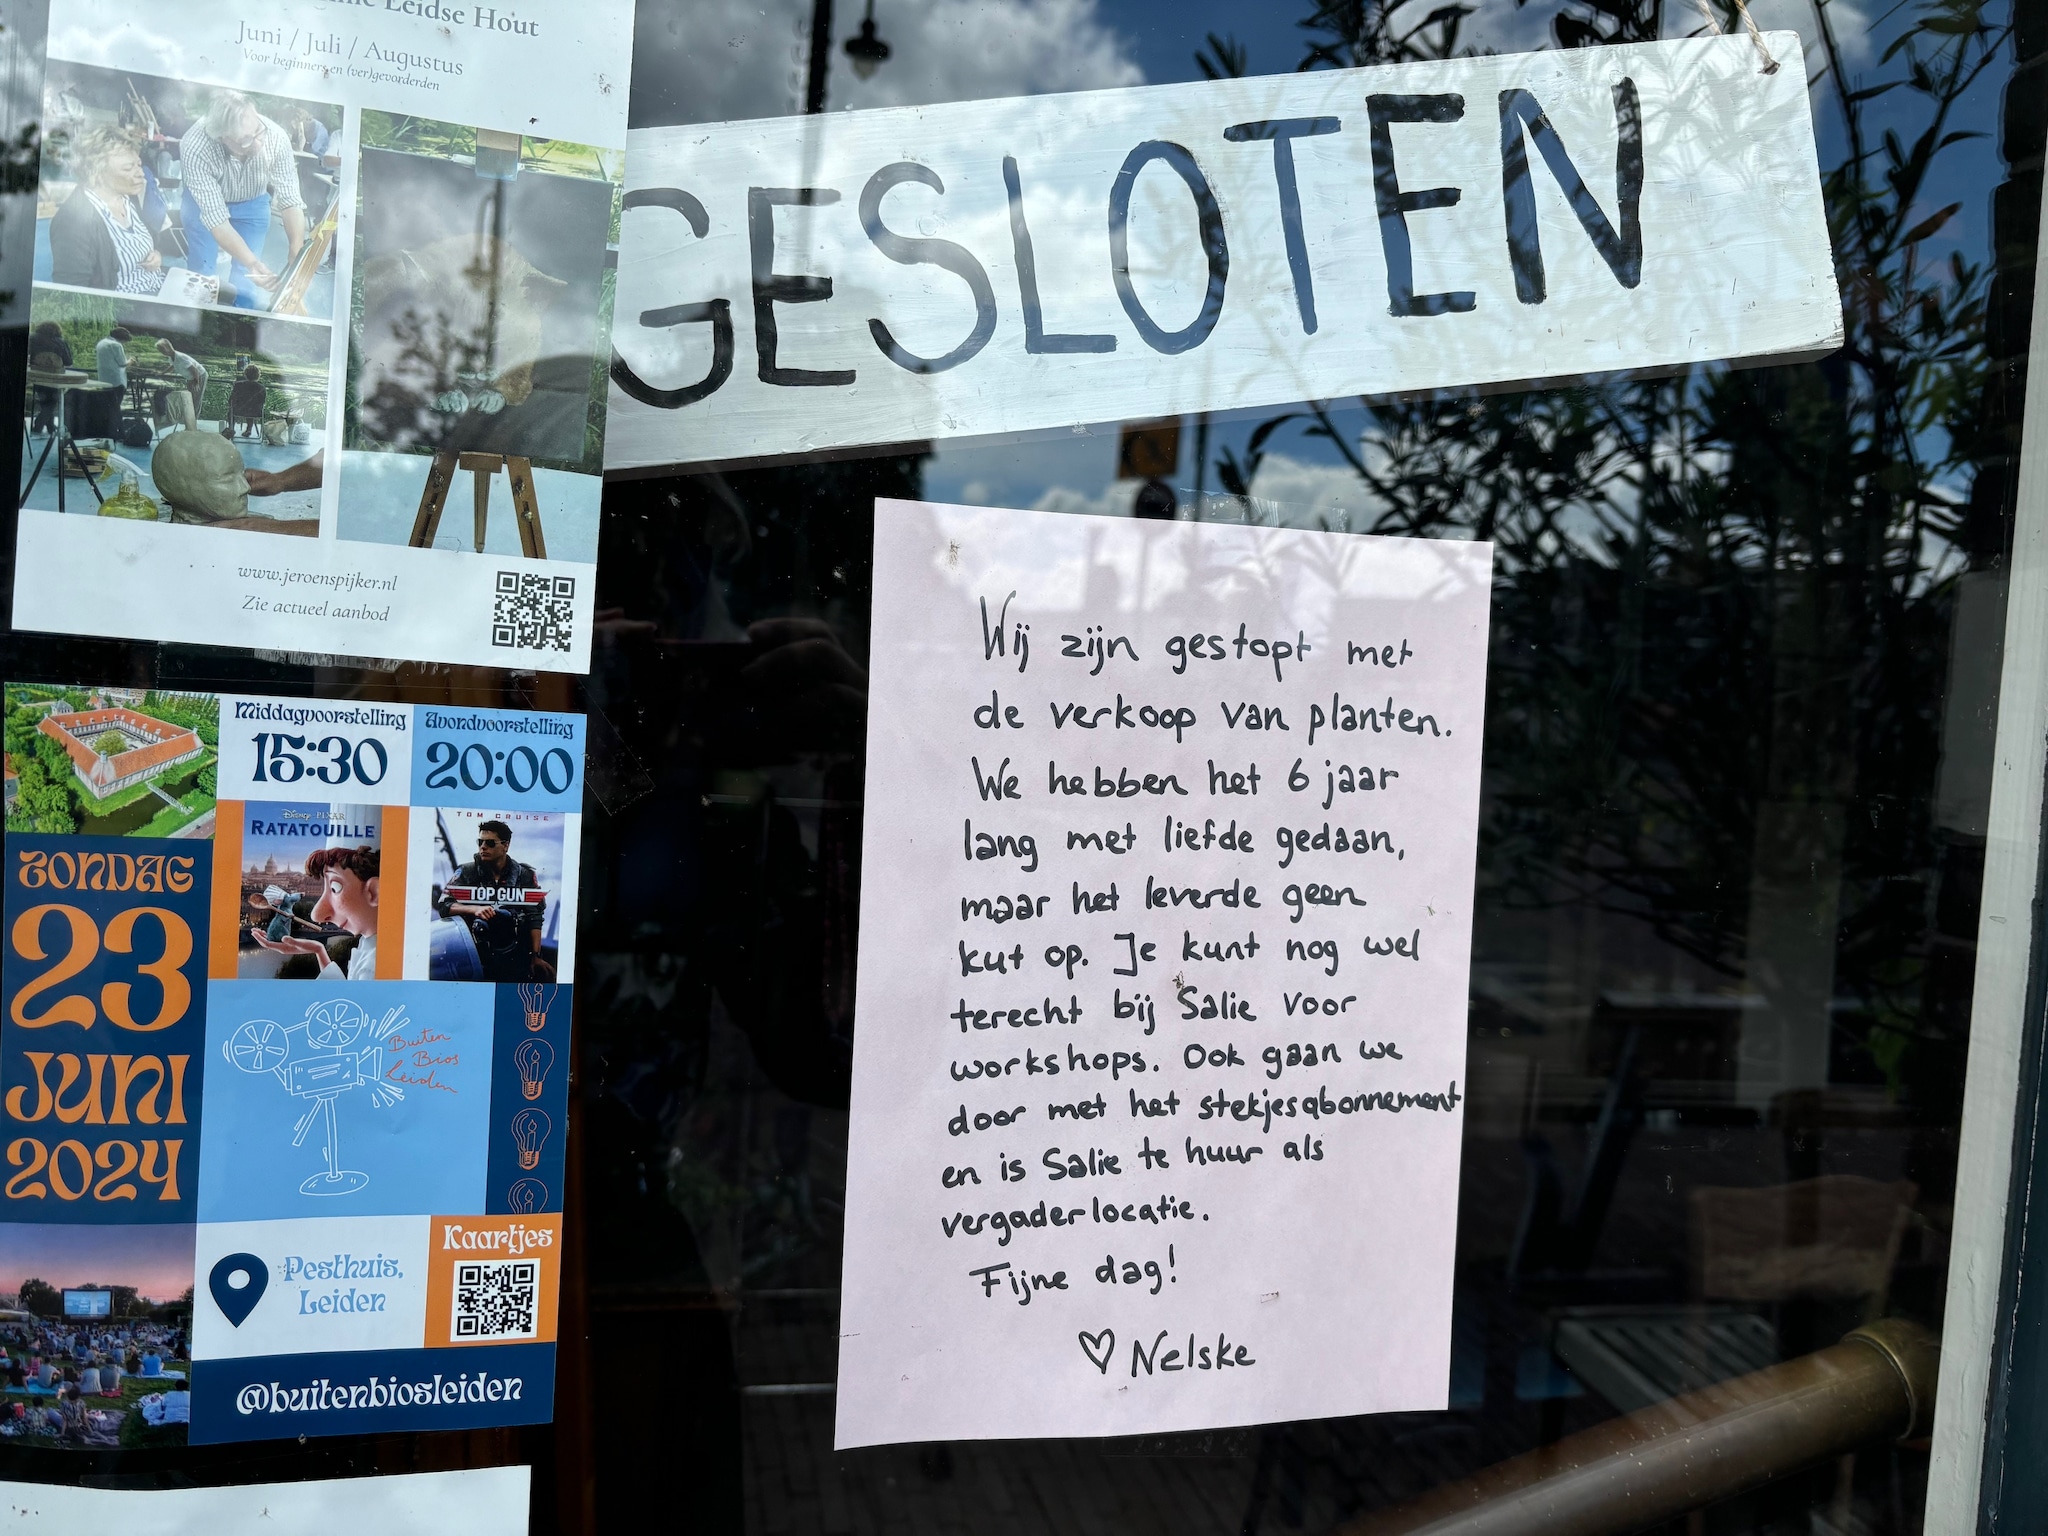 Leidse Hout
Juni / Juli / Augustus
Voor beginners en (ver)gevorderden
www.jeroenspijker.nl
Zie actueel aanbod
GESLOTEN
Wij zijn gestopt met
de verkoop van planten.
We hebben het 6 jaar
lang met liefde gedaan,
maar het leverde geen
kut op. Je kunt nog wel
terecht bij Salie voor
workshops. Ook gaan we
door met het stekjesabonnement
en is Salie te huur als
vergaderlocatie.
Fijne dag!
♡ Nelske
Middagvoorstelling
15:30
Avondvoorstelling
20:00
Disney PIXAR
RATATOUILLE
TOM CRUISE
TOP GUN
ZONDAG
23
JUNI
2024
Buiten
Bios
Leiden
Pesthuis,
Leiden
Kaartjes
@buitenbiosleiden